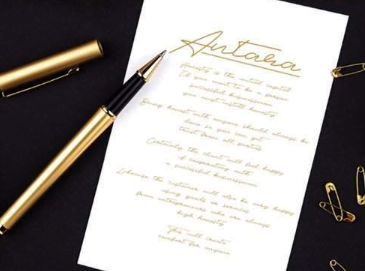 Antara
Honesty is the initial capital
If you want to be a
successful businessman
you must instill honesty
Being honest with anyone should always be
done so you can get
trust from all
Certainly the client will feel happy
if cooperating with
a successful businessman
the customer will also be very happy
when goods or services
from entrepreneurs who are always
high honesty
This will create
comfort for anyone